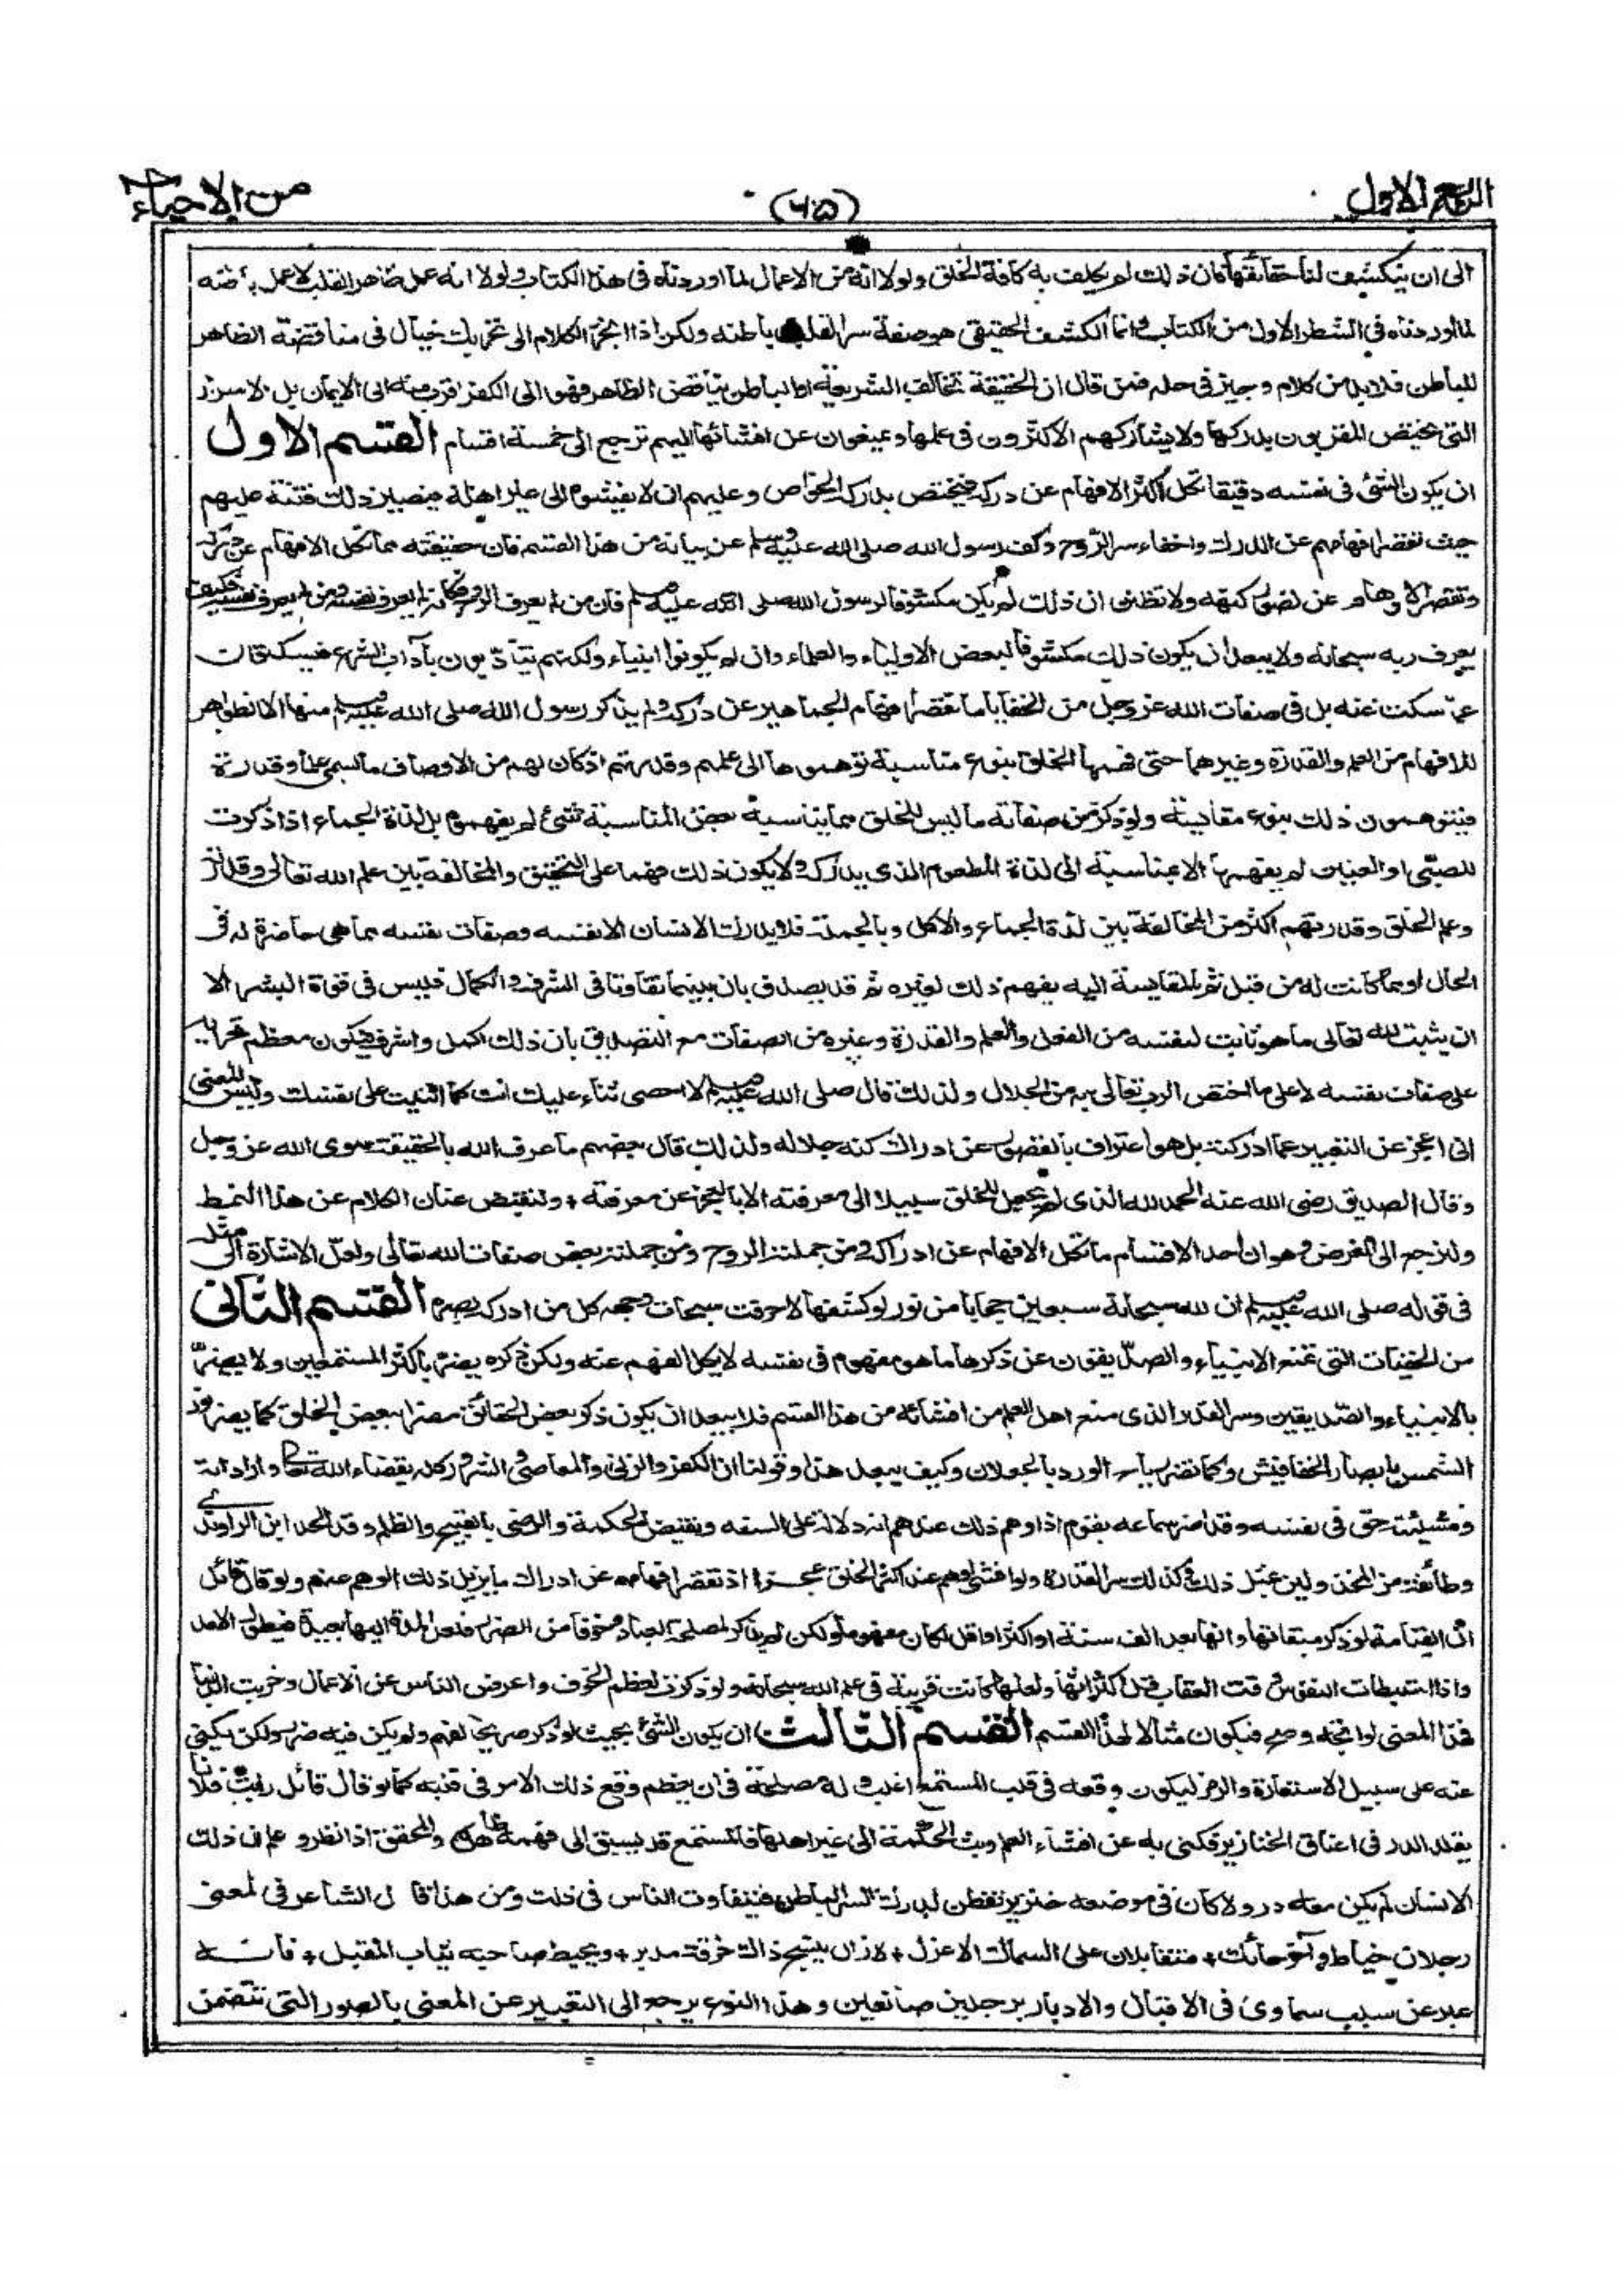 الربع الاول
(٦٥)
من الاحياء
الى ان ينكشف لنا حقائقها فان ذلك لم يكلف به كافة الخلق ولولا انه من الاعمال لما اوردناه فى هذا الكتاب ولولا انه عمل ظاهر القلب لا عمل باطنه
لما اوردناه فى الشطر الاول من الكتاب وانما الكشف الحقيقى هو صفة سر القلب وباطنه ولكن اذا انجر الكلام الى تحريك خيال فى مناقضة الظاهر
للباطن فلا بد من كلام وجيز فى حله فمن قال ان الحقيقة تخالف الشريعة او الباطن يناقض الظاهر فهو الى الكفر اقرب منه الى الايمان بل الاسرار
التى يختص المقربون بدركها ولا يشاركهم الاكثرون فى علمها ويمنعون عن افشائها اليهم ترجع الى خمسة اقسام القسم الاول
ان يكون الشئ فى نفسه دقيقا تكل اكثر الافهام عن دركه فيختص بدركه الخواص وعليهم ان لا يفشوه الى غير اهله فيصير ذلك فتنة عليهم
حيث تقصر افهامهم عن الدرك واخفاء سر الروح وكف رسول الله صلى الله عليه وسلم عن بيانه من هذا القسم فان حقيقته مما تكل الافهام عن دركه
وتقصر الاوهام عن تصور كنهه ولا تظنن ان ذلك لم يكن مكشوفا لرسول الله صلى الله عليه وسلم فان من لم يعرف الروح فكانه لم يعرف نفسه ومن لم يعرف نفسه فكيف
يعرف ربه سبحانه ولا يبعد ان يكون ذلك مكشوفا لبعض الاولياء والعلماء وان لم يكونوا انبياء ولكنهم يتأدبون بآداب الشرع فيسكتون
عما سكت عنه بل فى صفات الله عز وجل من الخفايا ما تقصر افهام الجماهير عن دركه ولم يذكر رسول الله صلى الله عليه وسلم منها الا الظواهر
للافهام من العلم والقدرة وغيرهما حتى فهمها الخلق بنوع مناسبة توهموها الى علمهم وقدرتهم اذ كان لهم من الاوصاف ما يسمى علما وقدرة
فيتوهمون ذلك بنوع مقايسة ولو ذكر من صفاته ما ليس للخلق مما يناسبه بعض المناسبة شئ لم يفهموه بل لذة الجماع اذا ذكرت
للصبى او العنين لم يفهمها الا بمناسبة الى لذة المطعوم الذى يدركه ولا يكون ذلك فهما على التحقيق والمخالفة بين علم الله تعالى وقدرته
وعلم الخلق وقدرتهم اكثر من المخالفة بين لذة الجماع والاكل وبالجملة فلا يدرك الانسان الا نفسه وصفات نفسه مما هى حاضرة له فى
الحال او مما كانت له من قبل ثم بالمقايسة اليه يفهم ذلك لغيره ثم قد يصدق بان بينهما تفاوتا فى الشرف والكمال فليس فى قوة البشر الا
ان يثبت لله تعالى ما هو ثابت لنفسه من الفعل والعلم والقدرة وغيره من الصفات مع التصديق بان ذلك اكمل واشرف فيكون معظم تحريمه
على صفات نفسه لا على ما اختص الرب تعالى به من الجلال ولذلك قال صلى الله عليه وسلم لا احصى ثناء عليك انت كما اثنيت على نفسك وليس المعنى
انى اعجز عن التعبير عما ادركته بل هو اعتراف بالقصور عن ادراك كنه جلاله ولذلك قال بعضهم ما عرف الله بالحقيقة سوى الله عز وجل
وقال الصديق رضى الله عنه الحمد لله الذى لم يجعل للخلق سبيلا الى معرفته الا بالعجز عن معرفته + ولنقبض عنان الكلام عن هذا النمط
ولنرجع الى الغرض وهو ان احد الاقسام ما تكل الافهام عن ادراكه ومن جملته الروح ومن جملته بعض صفات الله تعالى ولعل الاشارة الى مثله
فى قوله صلى الله عليه وسلم ان لله سبحانه سبعين حجابا من نور لو كشفها لاحرقت سبحات وجهه كل من ادركه بصره القسم الثانى
من الخفيات التى تمنع الانبياء والصديقون عن ذكرها ما هو مفهوم فى نفسه لا يكل الفهم عنه ولكن ذكره يضر باكثر المستمعين ولا يضر
بالانبياء والصديقين وسر القدر الذى منع اهل العلم من افشائه من هذا القسم فلا يبعد ان يكون ذكر بعض الحقائق مضرا ببعض الخلق كما يضر نور
الشمس بابصار الخفافيش وكما تضر رياح الورد بالجعلان وكيف يبعد هذا وقولنا ان الكفر والزنى والمعاصى والشرور كله بقضاء الله تعالى وارادته
ومشيئته حق فى نفسه وقد اضر سماعه بقوم اذ اوهم ذلك عندهم انه دلالة على السفه ونقيض الحكمة والرضى بالقبيح والظلم وقد الحد ابن الراوندى
وطائفة من المخذولين بمثل ذلك وكذلك سر القدر ولو افشى لاوهم عند اكثر الخلق عجزا اذ تقصر افهامهم عن ادراك ما يزيل ذلك الوهم عنهم ولو قال قائل
ان القيامة لو ذكر ميقاتها وانها بعد الف سنة او اكثر او اقل لكان مفهوما ولكن لم يذكر لمصلحة العباد وخوفا من الضرر فلعل المدة اليها بعيدة فيطول الامد
واذا استبطأت النفوس وقت العقاب قل اكتراثها ولعلها كانت قريبة فى علم الله سبحانه ولو ذكرت لعظم الخوف واعرض الناس عن الاعمال وخربت الدنيا
فهذا المعنى لو اتجه وصح فيكون مثالا لهذا القسم القسم الثالث ان يكون الشئ بحيث لو ذكر صريحا لفهم ولم يكن فيه ضرر ولكن يكنى
عنه على سبيل الاستعارة والرمز ليكون وقعه فى قلب المستمع اغلب وله مصلحة فى ان يعظم وقع ذلك الامر فى قلبه كما لو قال قائل رايت فلانا
يقلد الدر فى اعناق الخنازير فكنى به عن افشاء العلم وبث الحكمة الى غير اهلها فالمستمع قد يسبق الى فهمه ظاهره والمحقق اذا نظر وعلم ان ذلك
الانسان لم يكن معه در ولا كان فى موضعه خنزير تفطن لدرك السر الباطن فيتفاوت الناس فى ذلك ومن هذا قال الشاعر فى المعنى
رجلان خياط وآخر حائك + متقابلان على السماك الاعزل + لازال ينسج ذاك خرقة مدبر + ويخيط صاحبه ثياب المقبل + فانه
عبر عن سبب سماوى فى الاقبال والادبار برجلين صانعين وهذا النوع يرجع الى التعبير عن المعنى بالصور التى تتضمن